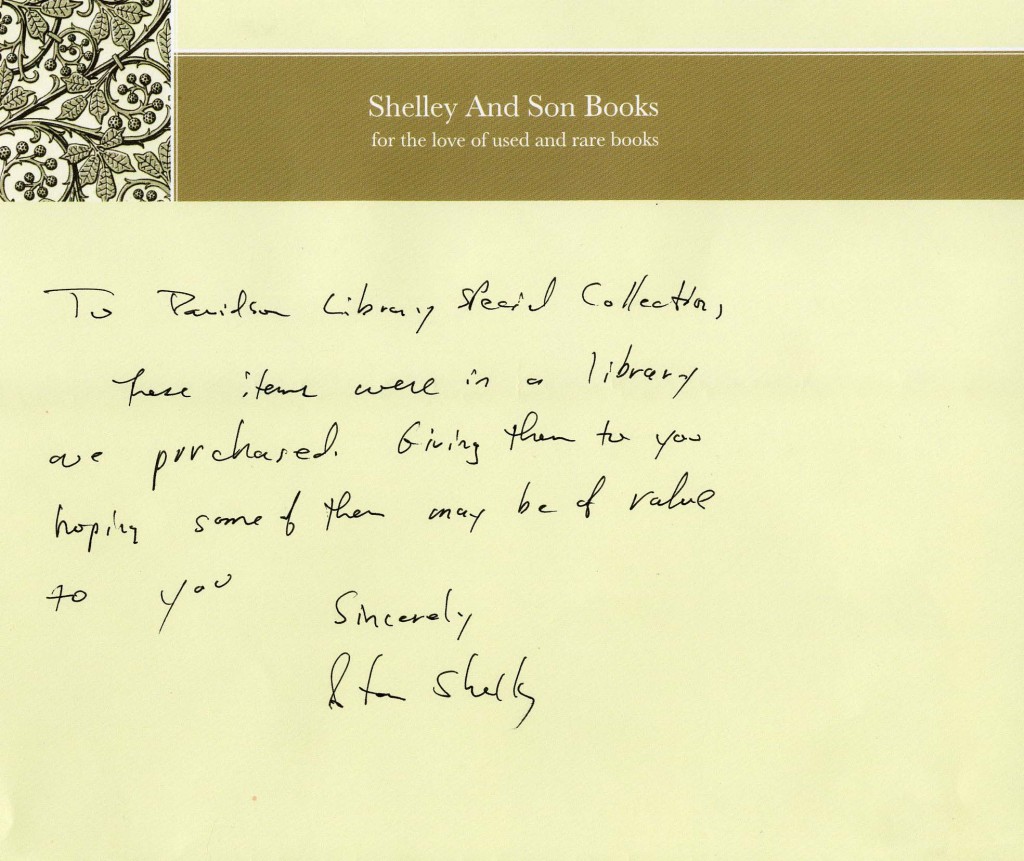 Shelley And Son Books
for the love of used and rare books
To Davidson Library Special Collection,
These items were in a library
we purchased. Giving them to you
hoping some of them may be of value
to you
Sincerely
Stan Shelley